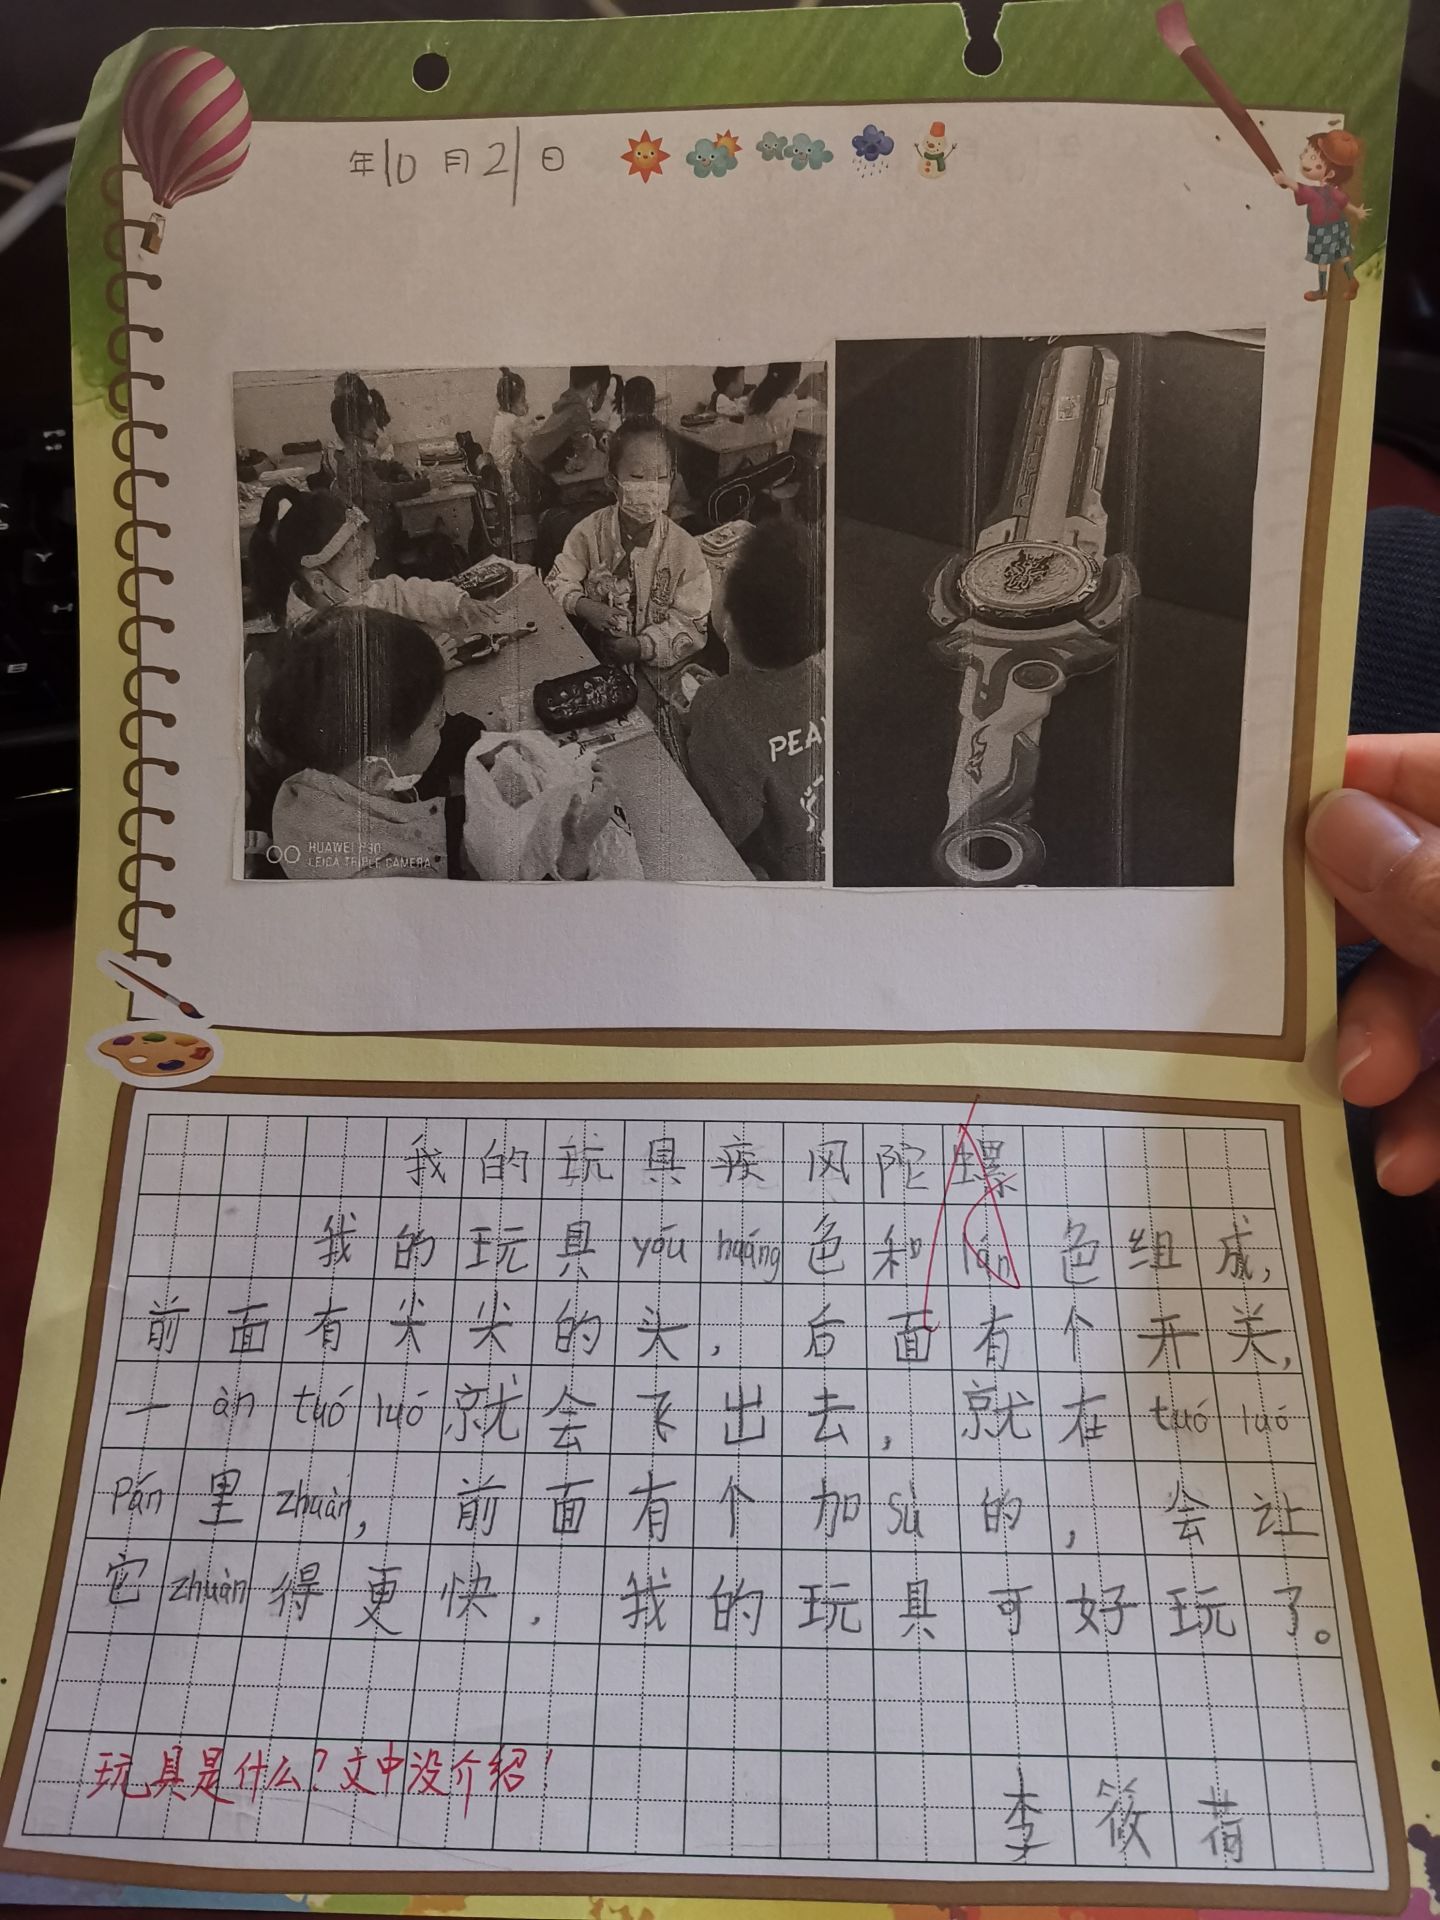 年10月21日
HUAWEI P30
LEICA TRIPLE CAMERA
PEA
我的玩具疾风陀螺
我的玩具yóu huáng色和lán色组成,
前面有尖尖的头,后面有个开关,
一àn tuó luó就会飞出去,就在tuó luó
pán里zhuàn,前面有个加sù的,会让
它zhuàn得更快.我的玩具可好玩了。
玩具是什么?文中没介绍!
李筱荷